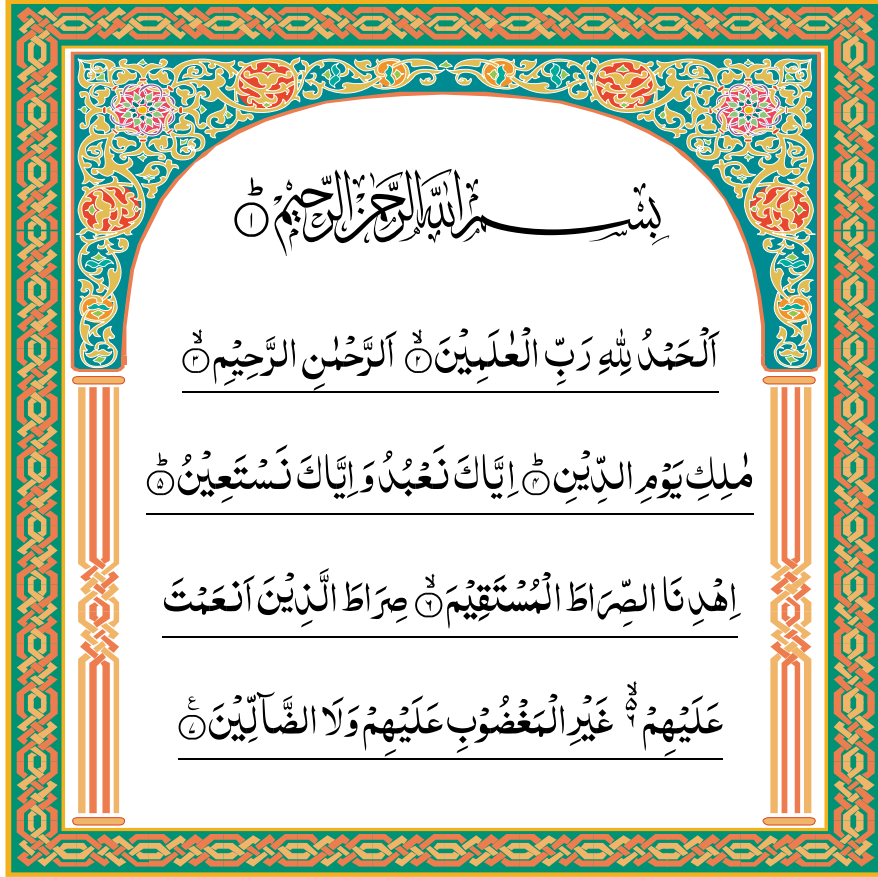 بِسْمِ اللّٰهِ الرَّحْمٰنِ الرَّحِيْمِ ؕ۝۱
اَلْحَمْدُ لِلّٰهِ رَبِّ الْعٰلَمِيْنَ ۙ۝۲ الرَّحْمٰنِ الرَّحِيْمِ ۙ۝۳
مٰلِكِ يَوْمِ الدِّيْنِ ؕ۝۴ اِيَّاكَ نَعْبُدُ وَاِيَّاكَ نَسْتَعِيْنُ ؕ۝۵
اِهْدِنَا الصِّرَاطَ الْمُسْتَقِيْمَ ۙ۝۶ صِرَاطَ الَّذِيْنَ اَنْعَمْتَ
عَلَيْهِمْ ۙ۬ۦ غَيْرِ الْمَغْضُوْبِ عَلَيْهِمْ وَلَا الضَّآلِّيْنَ ۝۷ ع